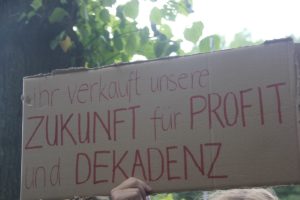 ihr verkauft unsere
ZUKUNFT für PROFIT
und DEKADENZ